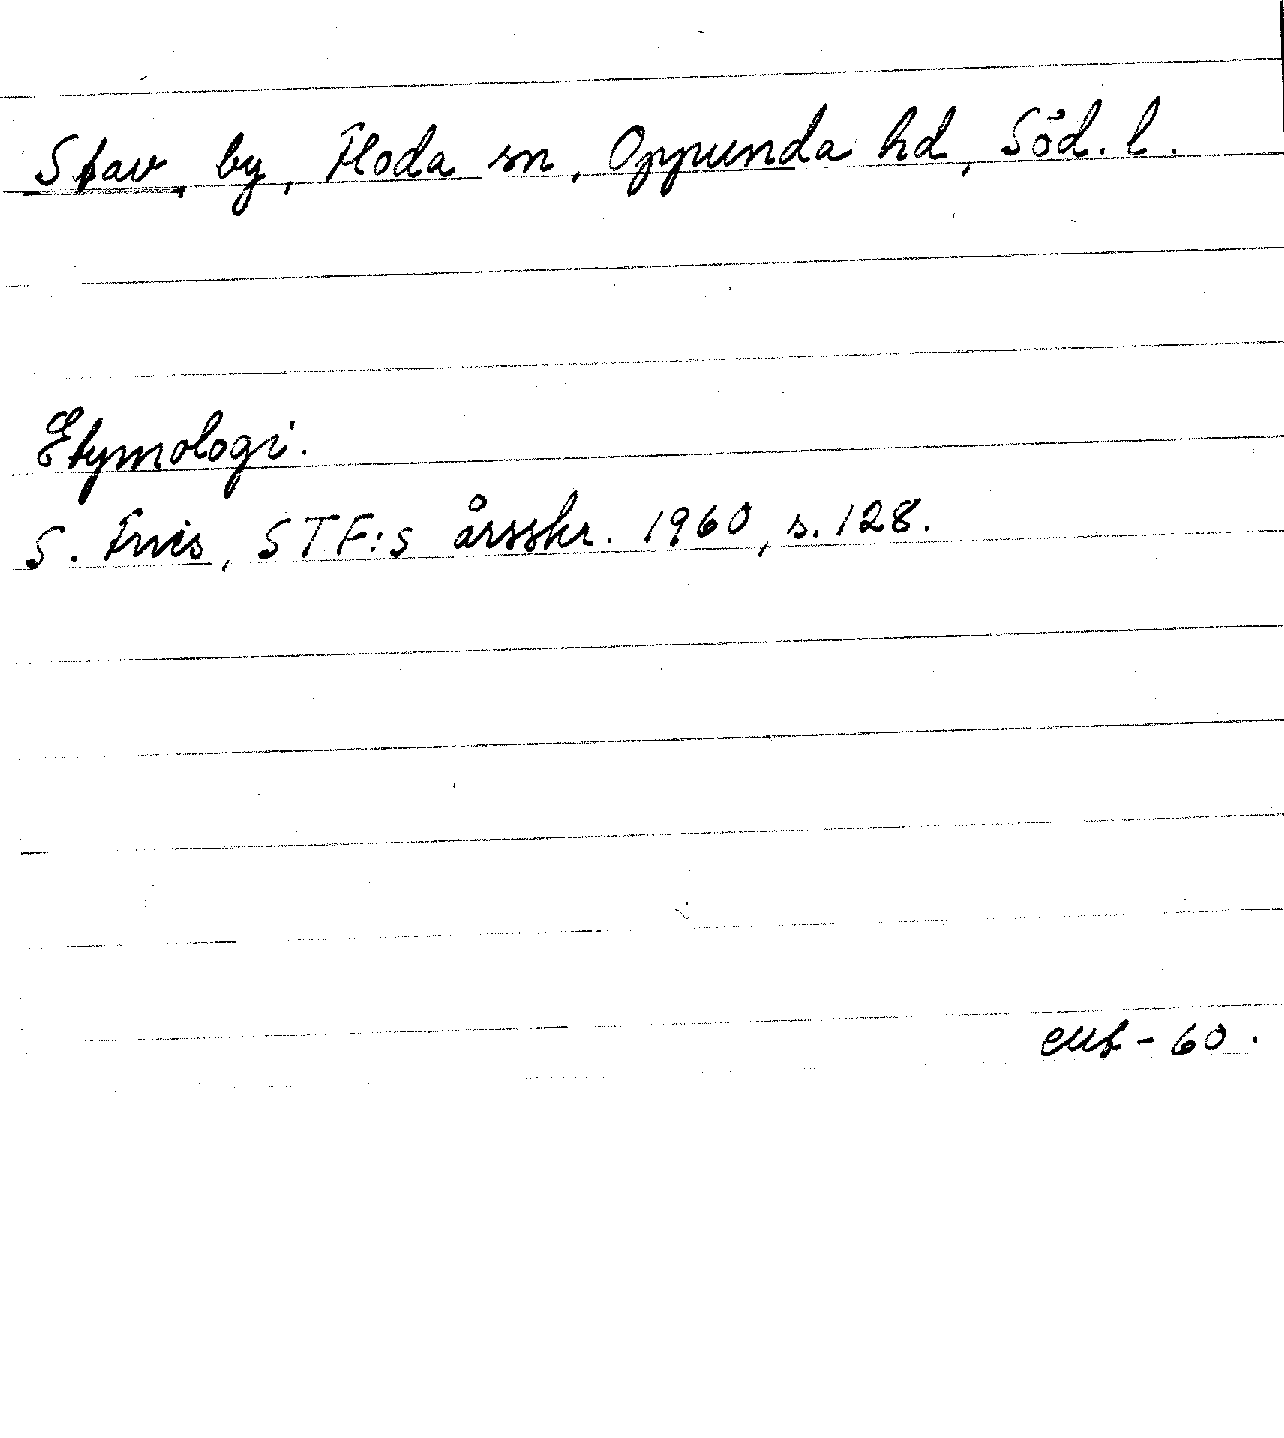 Stav, by, Floda sn, Oppunda hd, Söd. l.
Etymologi.
S. Fries, STF:s årsskr. 1960, s. 128.
- 60.